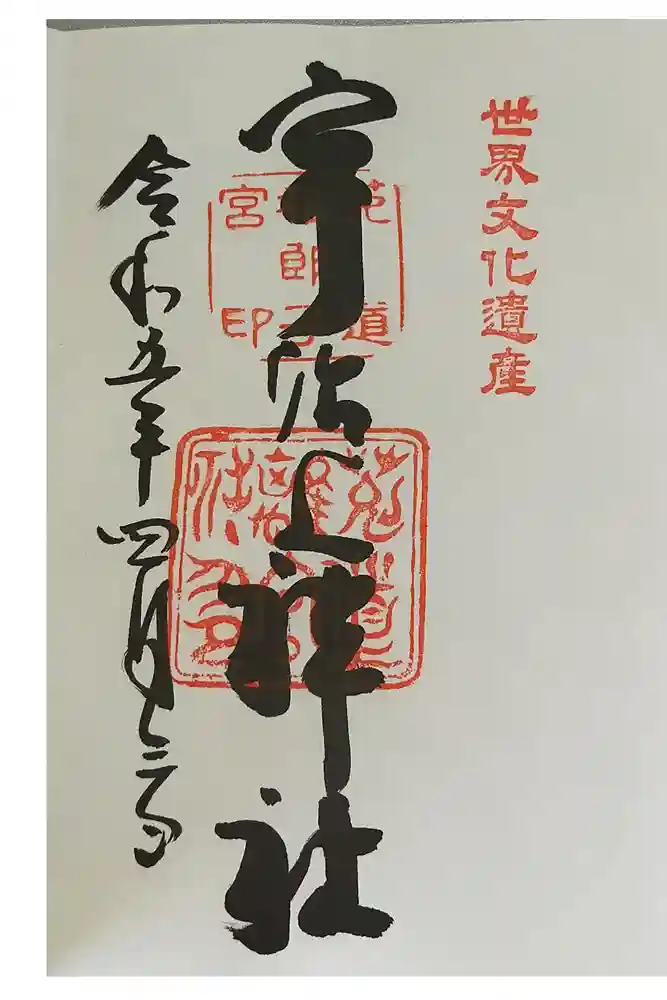 世界文化遺産
宇治上神社
道
郎子
宮印
令和五年四月三日